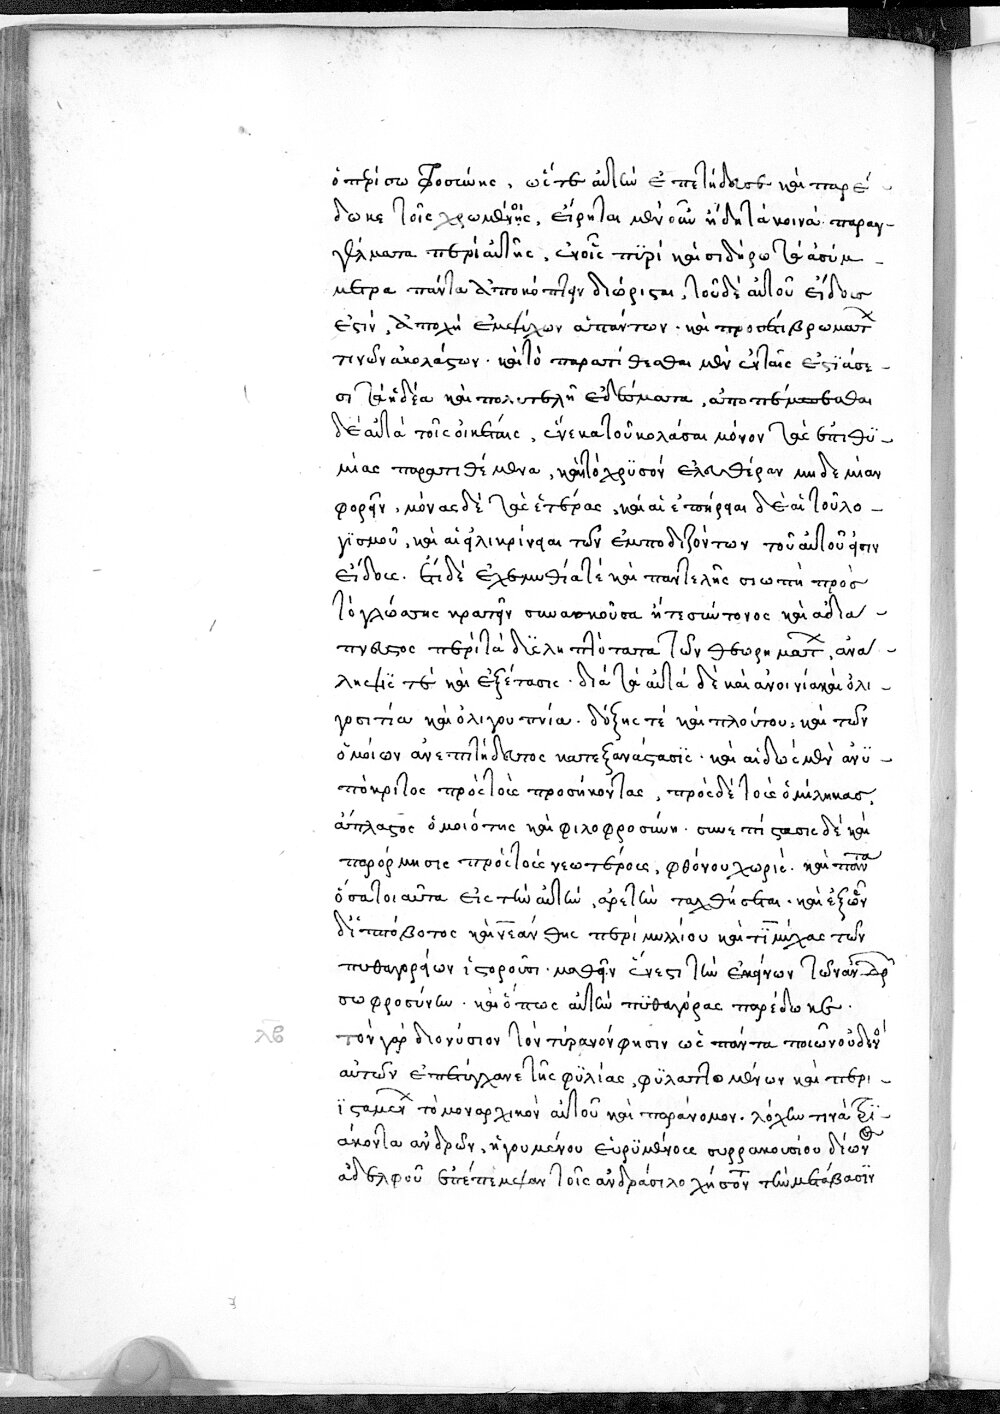 ὁ πρὶ σωφροσύνης, ὡς τε αὐτὴν ἐπετήδευσε καὶ παρέ-
δωκε τοῖς χρωμένοις, εἴρηται μὲν οὖν ἤδη τὰ κοινὰ παραγ-
γέλματα περὶ αὐτῆς, ἐν οἷς πϋρὶ καὶ σιδήρω τὰ ἀσύμ-
μετρα πάντα ἀποκόπτειν διώρισται, τοῦ δὲ αὐτοῦ εἴδους
ἐστὶν, ἀποχὴ ἐμψύχων ἁπάντων· καὶ προσέτι βρωμάτ
τινῶν ἀκολάστων· καὶ τὸ παρατίθεσθαι μὲν ἐν ταῖς ἑστϊάσε-
σι τὰ ἡδέα καὶ πολυτελῆ ἐδέσματα, ἀποπέμπεσθαι
δὲ αὐτὰ τοῖς οἰκέταις, ἕνεκα τοῦ κολάσαι μόνον τὰς ἐπιθϋ-
μίας παρατιθέμενα, καὶ τὸ χρϋσὸν ἐλευθέραν μηδεμίαν
φορεῖν, μόνας δὲ τὰς ἑτέρας, καὶ αἱ ἐποχαὶ δὲ αἱ τοῦ λο-
γϊσμοῦ, καὶ αἱ εἰλικρίνειαι τῶν ἐμποδιζόντων τοῦ αὐτοῦ εἰσιν
εἴδους. Ἔτι δὲ ἐχεμυθία τὲ καὶ παντελὴς σιωπὴ πρὸς
τὸ γλώσσης κρατεῖν συνασκοῦσα ἥ τε σύντονος καὶ ἀδιά-
πνευστος περὶ τὰ δϋσληπτότατα τῶν θεωρημάτ, ἀνά-
ληψΐς τε καὶ ἐξέτασις· διὰ τὰ αὐτὰ δὲ καὶ ἀνοινία καὶ ὀλι-
γοσιτία καὶ ὀλιγουπνία· δόξης τὲ καὶ πλούτου· καὶ τῶν
ὁμοίων ἀνεπιτήδευτος κατεξανάστασϊς· καὶ αἰδὼς μὲν ἀνϋ-
πόκριτος πρὸς τοὺς προσήκοντας, πρὸς δὲ τοὺς ὁμήλικας,
ἄπλαστος ὁμοιότης καὶ φιλοφροσύνη· συνεπίστασις δὲ καὶ
παρόρμησις πρὸς τοὺς νεωτέρους, φθόνου χωρὶς· καὶ πάντα
ὅσα τοιαῦτα εἰς τὴν αὐτὴν, ἀρετὴν ταχθήσεται· καὶ ἐξ ὧν
δὲ ἱππόβοτος καὶ νεάνθης περὶ μυλλίου καὶ τϊμύχας τῶν
πυθαγορείων ἱστοροῦσι· μαθεῖν ἔνεστι τὴν ἐκείνων τῶν ἀνδρ
σωφροσύνην· καὶ ὅπως αὐτὴν πϋθαγόρας παρέδωκε·
τὸν γὰρ διονύσιον τὸν τύραννόν φησιν ὡς πάντα ποιῶν οὐδενὸς
αὐτῶν ἐπετύγχανε τῆς φϋλίας, φϋλαττομένων καὶ περι-
ϊσταμέν τὸ μοναρχικὸν αὐτοῦ καὶ παράνομον. λόχον τινὰ τρϊ-
άκοντα ἀνδρῶν, ἡγουμένου εὐρϋμένους συρρακουσίου δίωνος
ἀδελφοῦ ἐπέπεμψαν τοῖς ἀνδράσι λοχήσοντ τὴν μετάβασϊν
λβ